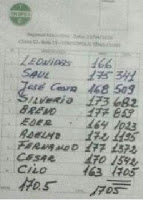 LEONIDAS 166
SAUL 175 341
JOSÉ COSTA 168 509
SILVERIO 173 682
BRENO 177 859
EDER 164 1023
ADELMO 172 1195
FERNANDO 177 1372
CESAR 170 1542
CILO 163 1705
170.5 1705